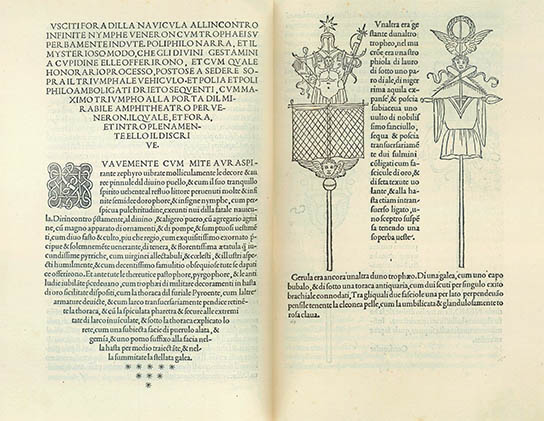 VSCITI FORA DILLA NAVICVLA ALLINCONTRO
INFINITE NYMPHE VENERON CVM TROPHAEI SV
PERBAMENTE INDVTE. POLIPHILO NARRA, ET IL
MYSTERIOSO MODO, CHE GLI DIVINI GESTAMINI
A CVPIDINE ELLE OFFERIRONO, ET CVM QVALE
HONORARIO PROCESSO, POSTOSE A SEDERE SO
PRA IL TRIVMPHALE VEHICVLO ET POLIA ET POLI
PHILO AMBO LIGATI DRIETO SEQVENTI, CVM MA
XIMO TRIVMPHO ALLA PORTA DIL MI
RABILE AMPHITHEATRO PER VE
NERON. IL QVALE, ET FORA,
ET INTRO PLENAMEN
TE ELLO IL DISCRI
VE.
VAVEMENTE CVM MITE AVRA SPI
rante zephyro uibrate molliculamente le decore &
aure pinnule dil diuino puello, & cum il suo tranquillo
spirito uehente al refluo littore peruenuti molte & infi
nite semidee dorophore, & insigne nymphe, cum per
spicua pulchritudine, exeunti nui della fatale nauicu
la. Dirincontro
al diuino, & aligero puero, cum agregario agmi
ne, cum magno apparato di ornamenti, & di pompe, & sumptuosi uestimē
ti, cum diuo fasto & culto, piu che regio, cum exquisitissimo exornato
cipue & solemnemente uenerante, di tenera, & florentissima ætatula
cundissime pyrrhice, cum uirginei allectabuli, & cælesti, & illustri aspe
cti humilmente, & cum decentissimo famulitio obsequiose tute se dapati
ce offerirono. Et ante tute le thereutice pastophore, pyrgophore, & le anti
ludie iubilante præcedeano, cum trophæi di militare decoramenti in hasta
di oro
cum la thoraca dil furiale Pyrrhone, cum laltre
armature deuicte, & cum larco transuersariamente pendice retine
te la thoraca, & cum la spiculata pharetra & secure alle extremi
tate di larco inuiculate, & sotto la thoraca explicato lo
rete, cum una subiecta facie di puerulo alata, &
gemia, & uno pomo suffixo alla facia nel
la hasta per medio traiectate, & nel
la summitate la stellata galea.
Vnaltra era ge
stante dunaltro
tropheo, nel me
cro era una stro
phiola di lauro
di sotto uno pa
ro di ale, di nige
rrima aquila ex
panse, & poscia
subiaceua uno
uulto di nobilis
simo fanciullo,
sequa & poscia
transuersariamē
te dui fulmini
colligati cum fa
sciole di oro, &
di seta texute uo
lante, & alla ha
sta etiam intran
sersero ligato, u
no sceptro suspē
sa tenendo una
superba ueste.
Gerula era ancora unaltra duno trophæo. Di una galea, cum uno capo
bubalo, & di sotto una toraca antiquaria, cum dui scuti per singulo exito
brachiale connodati, Tra gli quali due fasciole una per lato perpendeuo
pensilemente la cleonea pelle, cum la umbilicata & glandulosamente to
rosa claua.